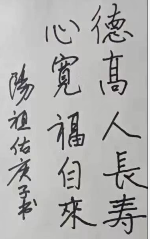 德高人長寿
心寬福自來
陽祖佑庚子书